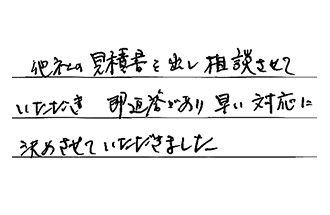 他社の見積書を出し相談させて
いただき 即返答があり早い対応に
決めさせていただきました